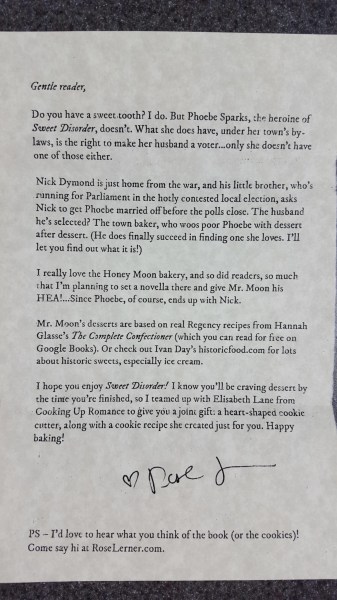 Gentle reader,
Do you have a sweet tooth? I do. But Phoebe Sparks, the heroine of
Sweet Disorder, doesn't. What she does have, under her town's by-
laws, is the right to make her husband a voter...only she doesn't have
one of those either.
Nick Dymond is just home from the war, and his little brother, who's
running for Parliament in the hotly contested local election, asks
Nick to get Phoebe married off before the polls close. The husband
he's selected? The town baker, who woos poor Phoebe with dessert
after dessert. (He does finally succeed in finding one she loves. I'll
let you find out what it is!)
I really love the Honey Moon bakery, and so did readers, so much
that I'm planning to set a novella there and give Mr. Moon his
HEA!...Since Phoebe, of course, ends up with Nick.
Mr. Moon's desserts are based on real Regency recipes from Hannah
Glasse's The Complete Confectioner (which you can read for free on
Google Books). Or check out Ivan Day's historicfood.com for lots
about historic sweets, especially ice cream.
I hope you enjoy Sweet Disorder! I know you'll be craving dessert by
the time you're finished, so I teamed up with Elisabeth Lane from
Cooking Up Romance to give you a joint gift: a heart-shaped cookie
cutter, along with a cookie recipe she created just for you. Happy
baking!
♡ Rose L
PS – I'd love to hear what you think of the book (or the cookies)!
Come say hi at RoseLerner.com.